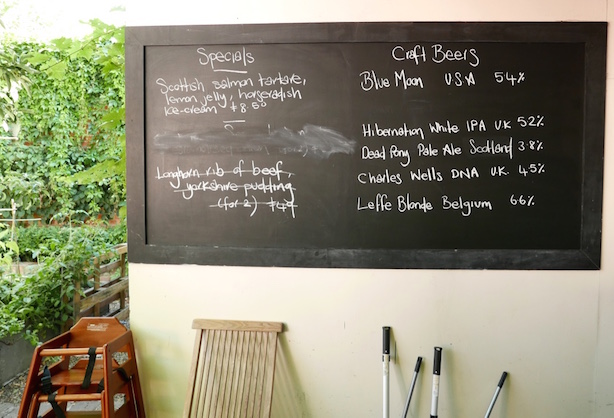 Specials
Scottish salmon tartare,
lemon jelly, horseradish
ice-cream
Longhorn rib of beef,
yorkshire pudding
(for 2)
Craft Beers
Blue Moon USA 5.4%
Hibernation White IPA U.K 5.2%
Dead Pony Pale Ale Scotland 3.8%
Charles Wells DNA U.K. 4.5%
Leffe Blonde Belgium 6.6%